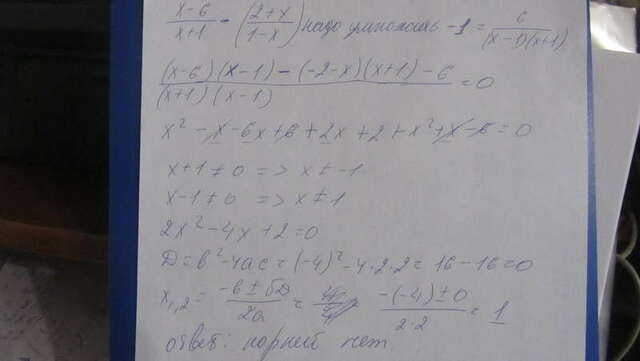 (x-6)/(x+1) - ((2+x)/(1-x)) надо умножить -1 = 6/((x-1)(x+1))
((x-6)(x-1)-(-2-x)(x+1)-6)/((x+1)(x-1)) =0
x² -x-6x+6+2x+2+x²+x-6=0
x+1≠0 => x≠-1
x-1≠0 => x≠1
2x²-4x+2=0
D=b²-4ac=(-4)²-4·2·2=16-16=0
x₁,₂= (-b±√D)/2a = (-(-4)±0)/(2·2) = 1
ответ: корней нет